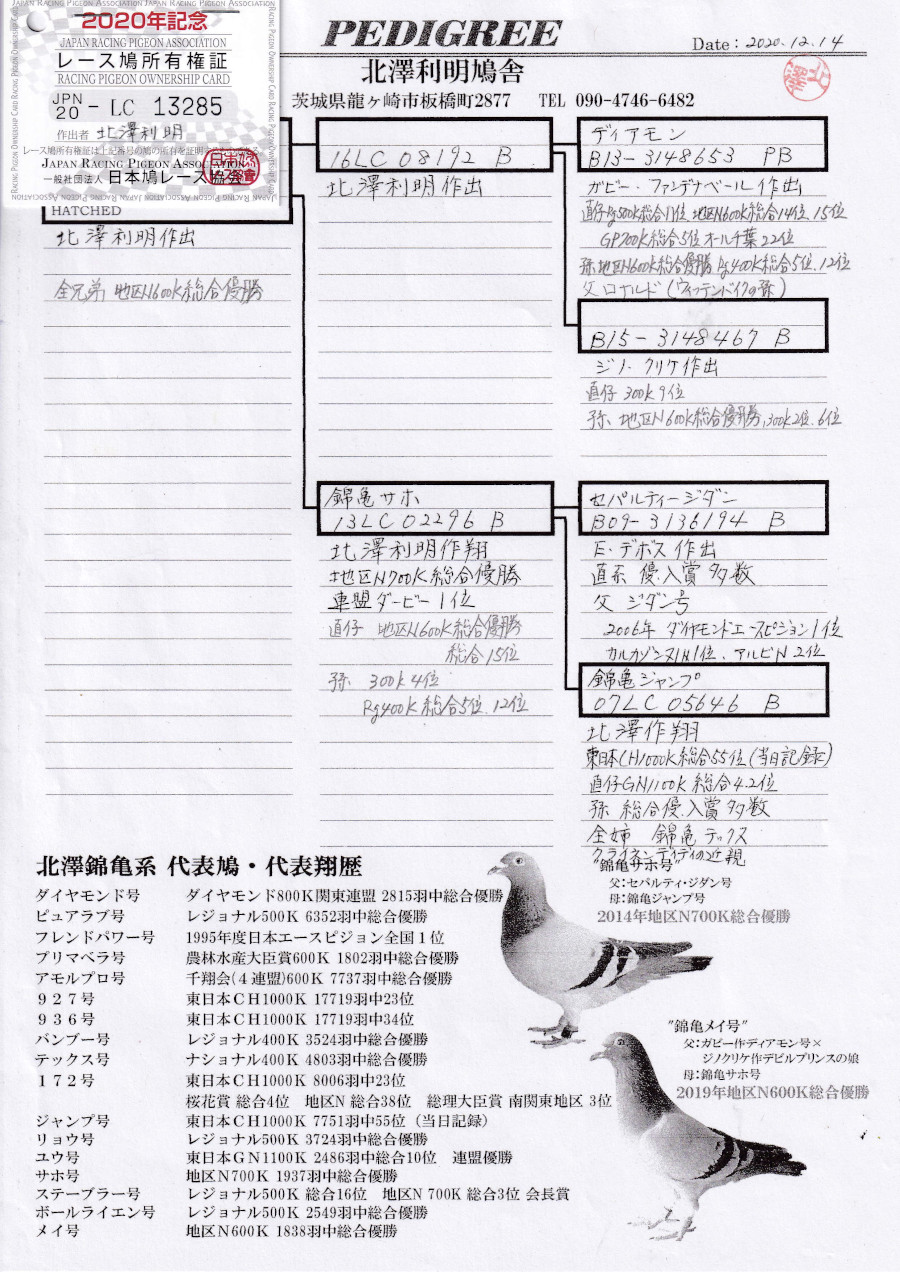 2020年記念
JAPAN RACING PIGEON ASSOCIATION
レース鳩所有権証
RACING PIGEON OWNERSHIP CARD
JPN 20 - LC 13285
作出者 北澤利明
レース鳩所有権証は上記番号の鳩の所有を証明するものである
JAPAN RACING PIGEON ASSOCIATION
一般社団法人 日本鳩レース協会
PEDIGREE
Date : 2020.12.14
北澤利明鳩舎
茨城県龍ヶ崎市板橋町2877 TEL 090-4746-6482
HATCHED
北澤利明作出
全兄弟 地区N600K総合優勝
16LC08192 B
北澤利明作出
ディアモン
B13-3148653 PB
ガビー・ファンデナベール作出
直仔Rg500K総合11位 地区N600K総合14位 15位
GP700K総合5位 オール千葉22位
孫 地区N600K総合優勝 Rg400K総合5位、12位
父 ロナルド(ウィッテンドイクの孫)
B15-3148467 B
ジノ・クリケ作出
直仔 300K 9位
孫 地区N600K総合優勝、300K2位、6位
錦亀サホ
13LC02296 B
北澤利明作翔
地区N700K総合優勝
連盟ダービー1位
直仔 地区N600K総合優勝
総合15位
孫 300K 4位
Rg400K総合5位、12位
セパルティージダン
B09-3136194 B
E・デボス作出
直系 優、入賞多数
父 ジダン号
2006年 ダイヤモンドエースピジョン1位
カルカソンヌIN1位、アルビN2位
錦亀ジャンプ
07LC05646 B
北澤作翔
東日本CH1000K総合55位(当日記録)
直仔GN1100K総合4.2位
孫 総合優、入賞多数
全姉 錦亀テックス
クライネンディディの近親
北澤錦亀系 代表鳩・代表翔歴
ダイヤモンド号 ダイヤモンド800K関東連盟 2815羽中総合優勝
ピュアラブ号 レジョナル500K 6352羽中総合優勝
フレンドパワー号 1995年度日本エースピジョン全国1位
プリマベラ号 農林水産大臣賞600K 1802羽中総合優勝
アモルプロ号 千翔会(4連盟)600K 7737羽中総合優勝
927号 東日本CH1000K 17719羽中23位
936号 東日本CH1000K 17719羽中34位
バンブー号 レジョナル400K 3524羽中総合優勝
テックス号 ナショナル400K 4803羽中総合優勝
172号 東日本CH1000K 8006羽中23位
桜花賞 総合4位 地区N 総合38位 総理大臣賞 南関東地区 3位
ジャンプ号 東日本CH1000K 7751羽中55位(当日記録)
リョウ号 レジョナル500K 3724羽中総合優勝
ユウ号 東日本GN1100K 2486羽中総合10位 連盟優勝
サホ号 地区N700K 1937羽中総合優勝
ステープラー号 レジョナル500K 総合16位 地区N 700K 総合3位 会長賞
ボールライエン号 レジョナル500K 2549羽中総合優勝
メイ号 地区N600K 1838羽中総合優勝
"錦亀サホ号"
父:セパルティ・ジダン号
母:錦亀ジャンプ号
2014年地区N700K総合優勝
"錦亀メイ号"
父:ガビー作ディアモン号×
ジノクリケ作デビルプリンスの娘
母:錦亀サホ号
2019年地区N600K総合優勝